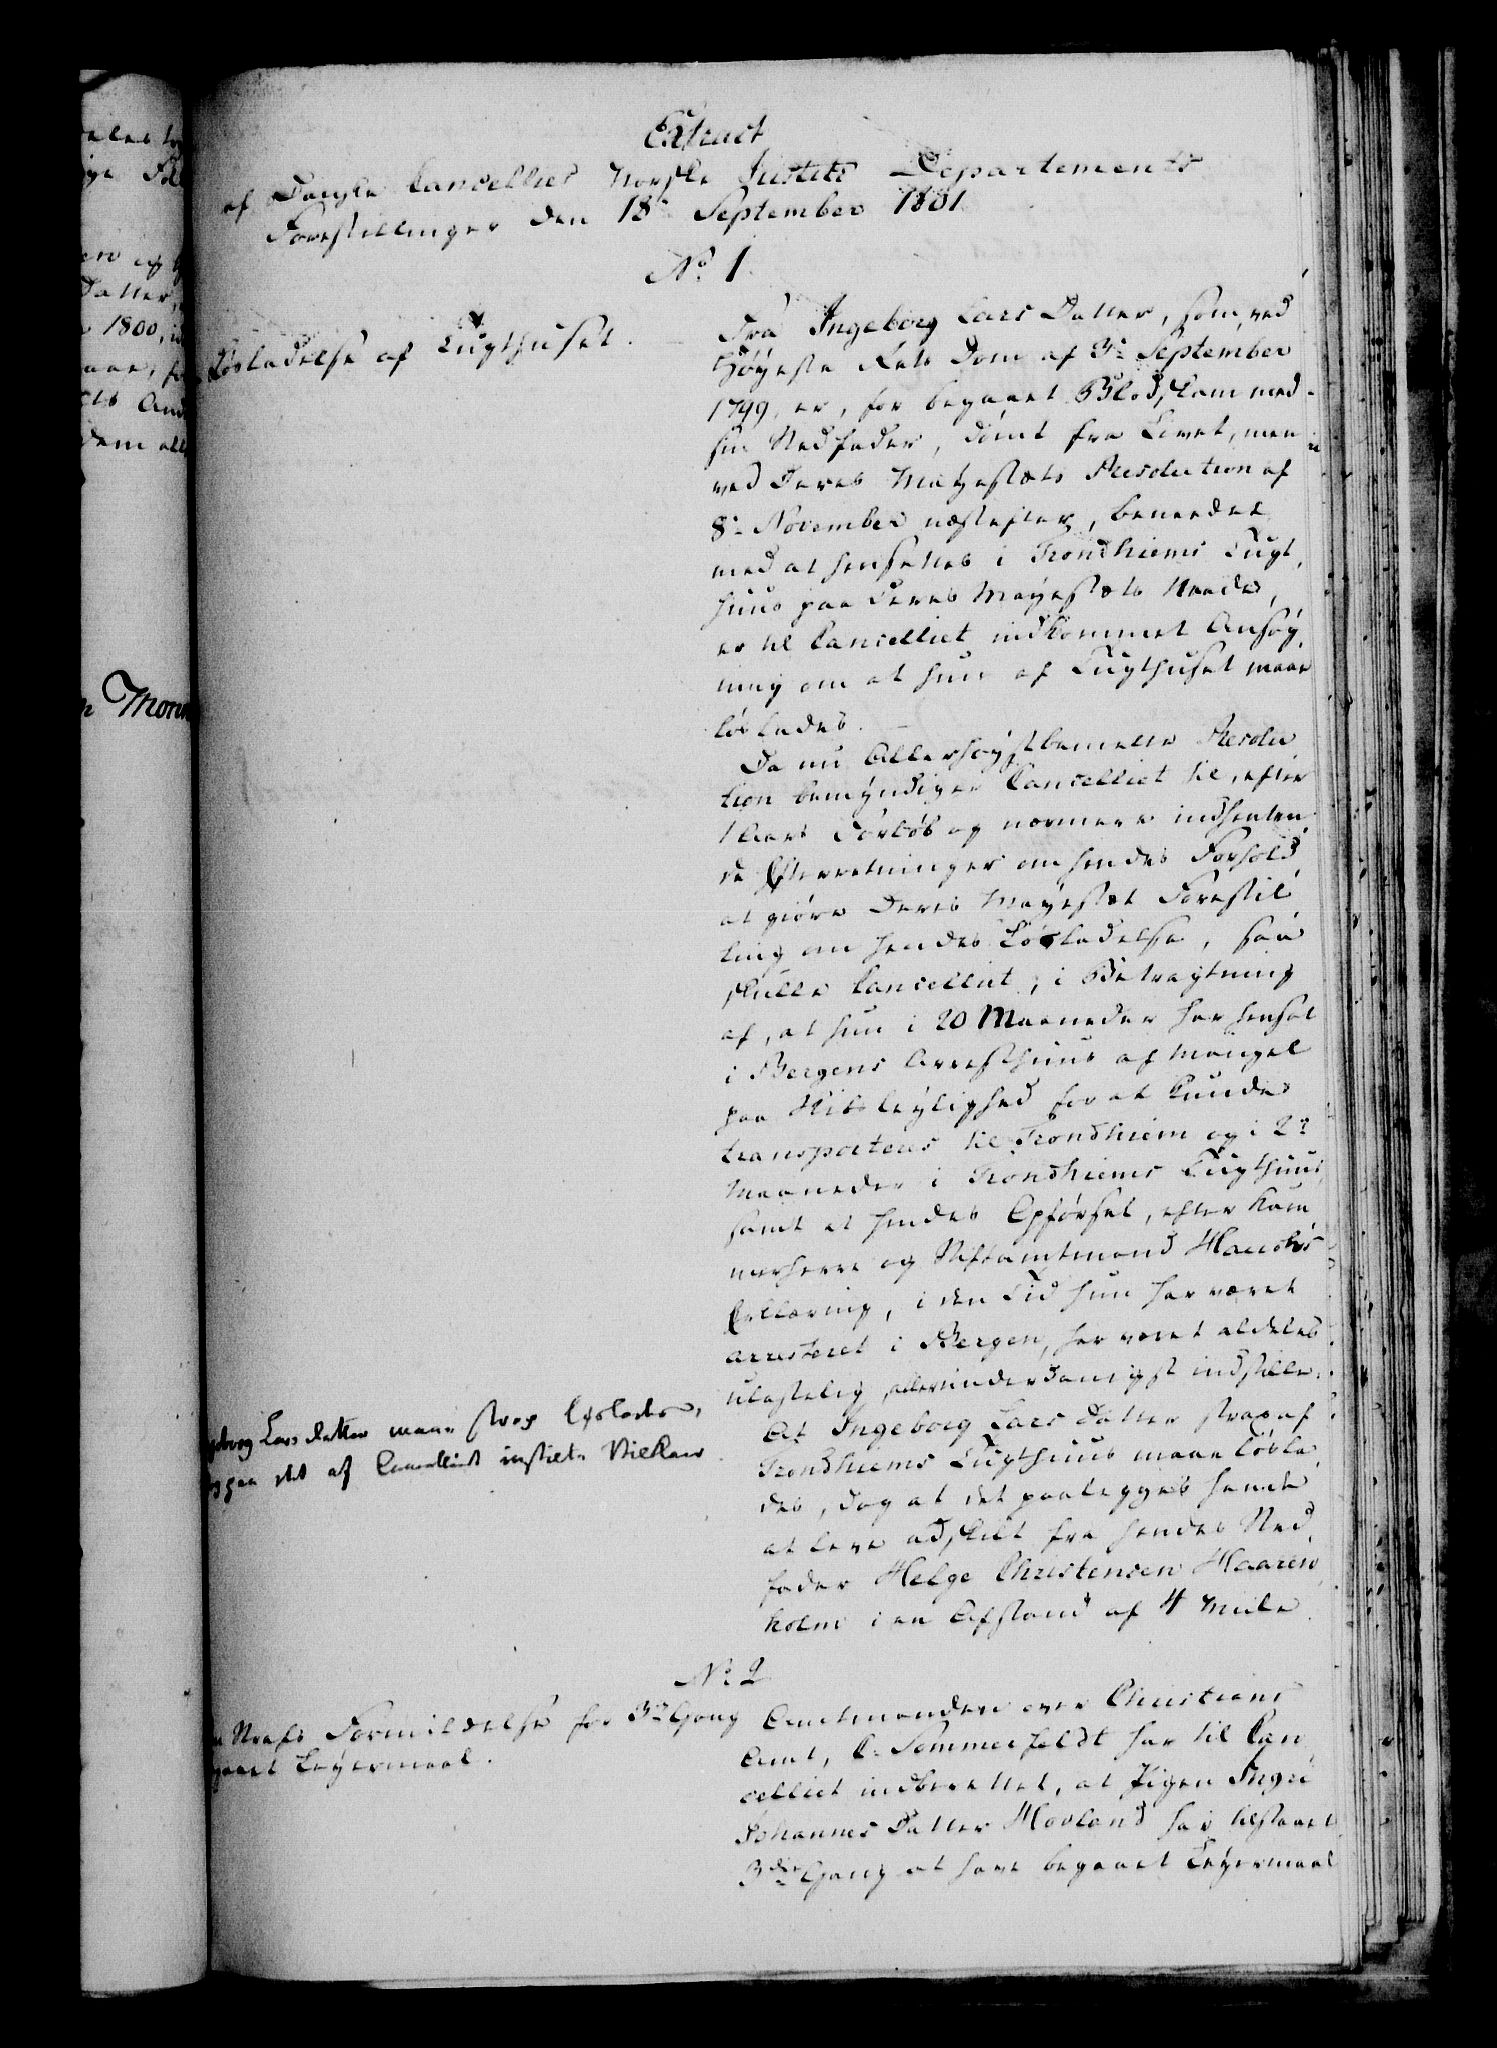 Extract
af Danske Cancellies Norske Justits Departements
Forestillinger den 18de September 1801.
No 1.
Løsladelse af Tugthuset.
Fra Ingeborg Lars Datter, som, ved
Høyeste Rets Dom af 3de September
1799, er, for begaaet Blodskam med
sin Stedfader, dømt fra Livet, men
ved Deres Mayestæts Resolution af
8de November næstefter, benaadet
med at hensættes i Trondhiems Tugt
huus paa Deres Mayestæts Naade,
er til Cancelliet indkommet Ansøg
ning om at hun af Tugthuset maae
løslades.
Da nu Allerhøystbemelte Resolu
tion bemyndiger Cancelliet til, efter
1 Aars Forløb og nærmere indhenten
de Efterretninger om hendes Forhold
at giøre Deres Mayestæt Forestil
ling om hendes Løsladelse, saa
skulle Cancelliet, i Betragtning
af, at hun i 20 Maaneder har hensat
i Bergens Arresthuus af Mangel
paa Skibsleylighed for at kunde
transporteres til Trondhiem og i 2de
Maaneder i Trondhiems Tugthuus,
samt at hendes Opførsel, efter Kam
merherre og Stiftamtmand Hauchs
Erklæring, i den Tid hun har været
arresteret i Bergen, har været aldeles
ulastelig, allerunderdanigst indstille:
At Ingeborg Lars Datter strax af
Trondhiems Tugthuus maae løsla
des, dog at det paalegges hende
at leve adskilt fra hendes Sted
fader Helge Christensen Haaren
holm i en Afstand af 4 Mile
Lars datter maae strax løslades,
paa det af Cancelliet instilte Vilkaar
No 2
Strafs Formildelse for 3de Gang
Leyermaal.
Amtmanden over Christians
Amt, C. Sommerfeldt har til Can
celliet indberettet, at Pigen Ingri
Johannes Datter Hovland har tilstaaet
3die Gang at have begaaet Leyermaal
1800,